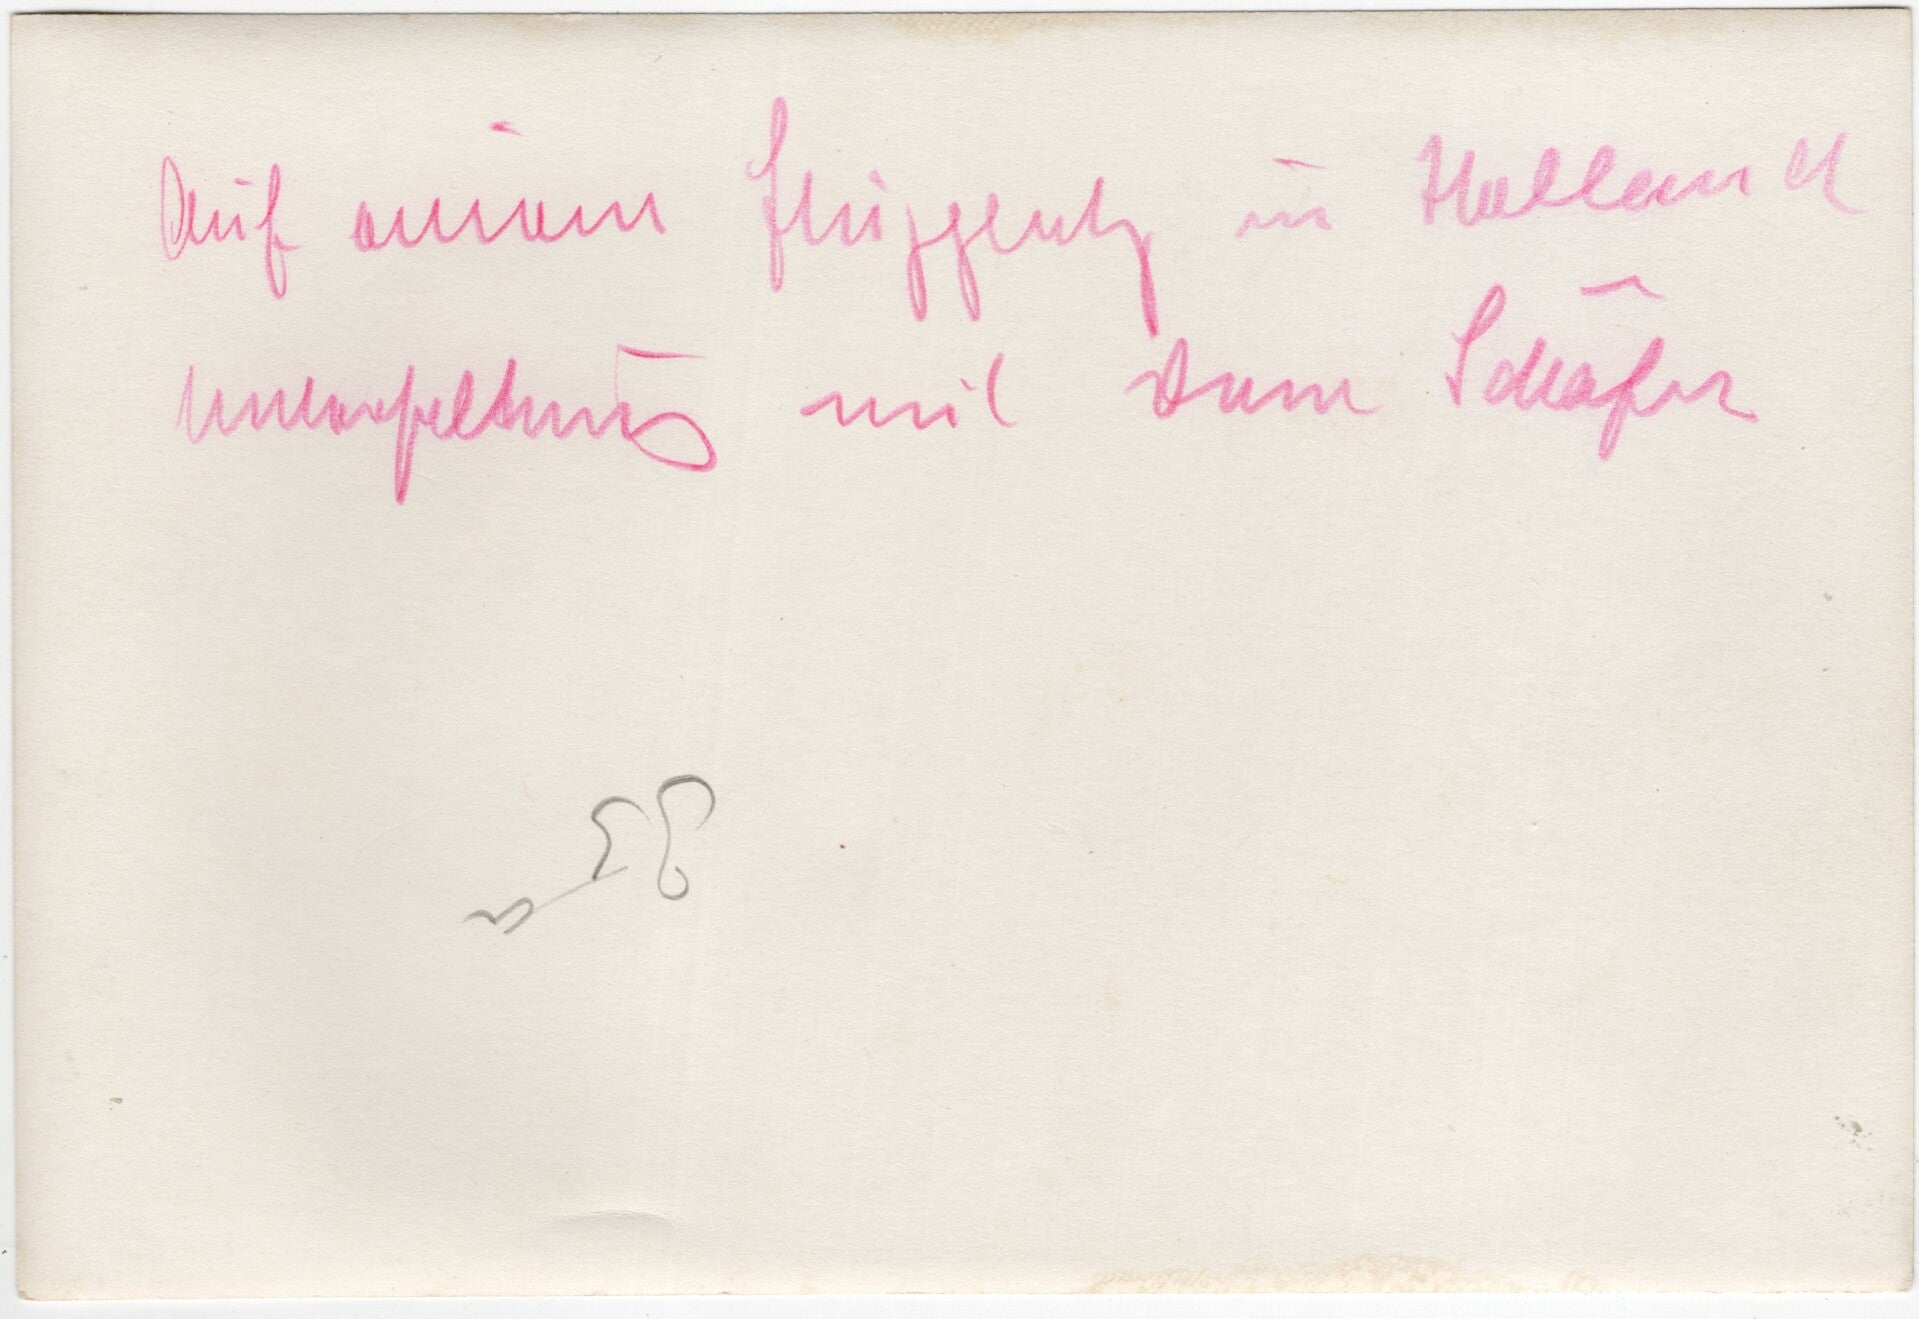 Auf einem Flugplatz in Holland
Unterhaltung mit dem Schäfer